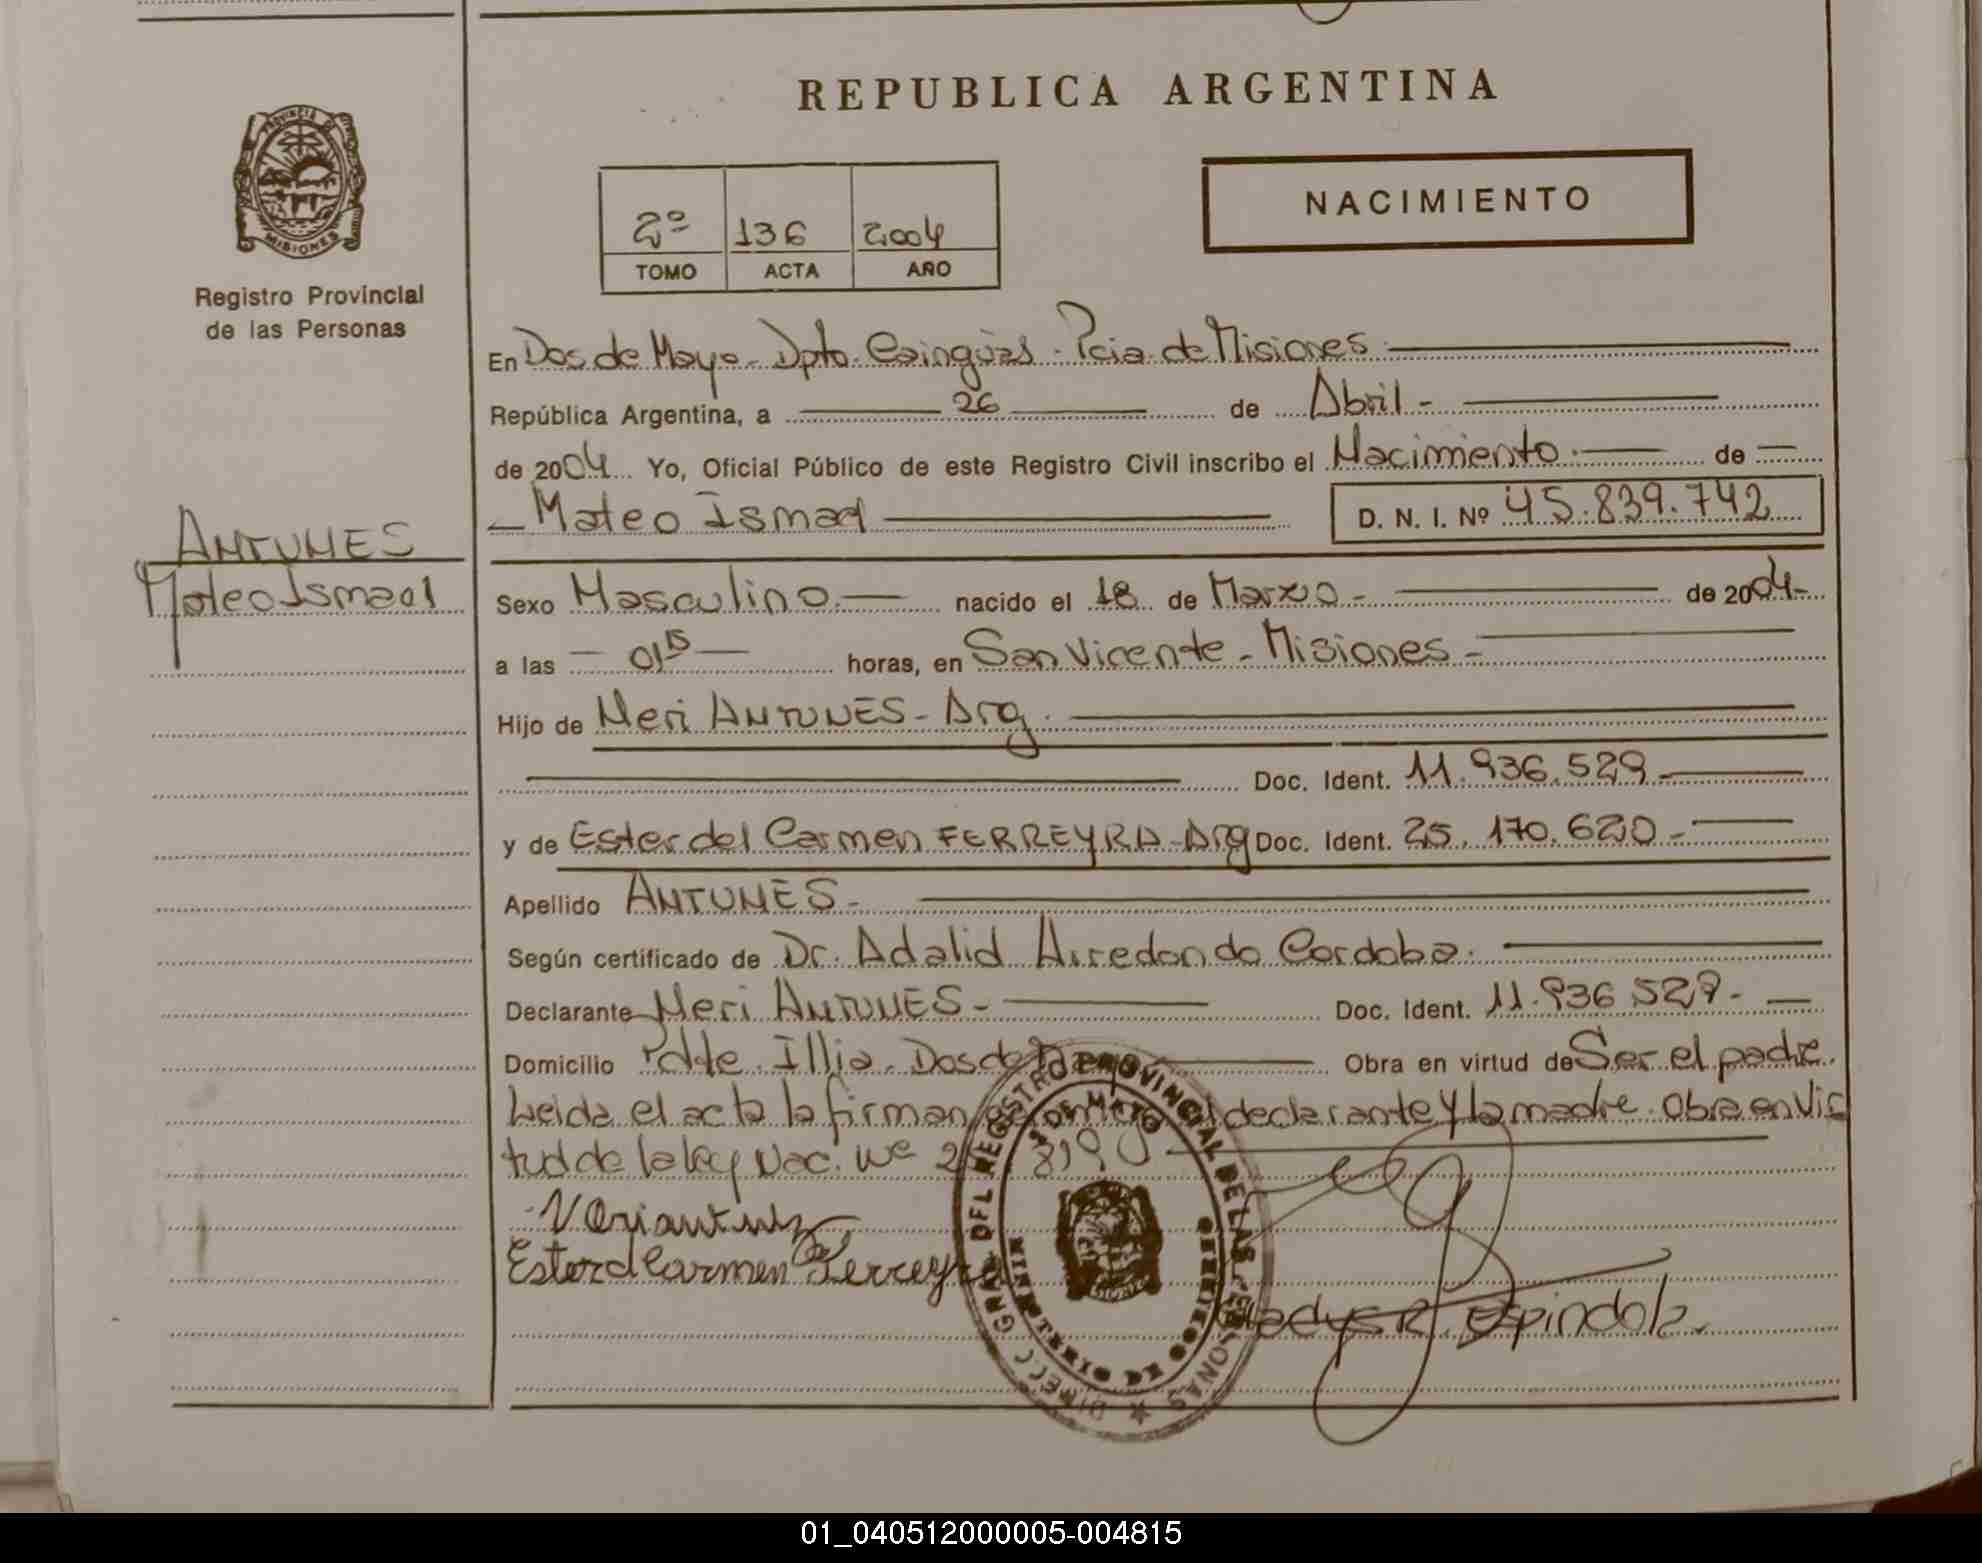 REPUBLICA ARGENTINA
PROVINCIA DE
MISIONES
Registro Provincial
de las Personas
NACIMIENTO
2º 136 2004
TOMO ACTA AÑO
En Dos de Mayo - Dpto. Cainguás - Pcia. de Misiones.
República Argentina, a 26 de Abril -
de 2004 Yo, Oficial Público de este Registro Civil inscribo el Nacimiento. de
Mateo Ismael D. N. I. Nº 45.839.742
ANTUNES
Mateo Ismael
Sexo Masculino. nacido el 18 de Marzo - de 2004-
a las 01 15 horas, en San Vicente - Misiones -
Hijo de Neri ANTUNES - Arg.
Doc. Ident. 11.936.529
y de Ester del Carmen FERREYRA - Arg Doc. Ident. 25.170.620.-
Apellido ANTUNES -
Según certificado de Dr. Adalid Arredondo Cordoba.
Declarante Neri ANTUNES - Doc. Ident. 11.936.529-
Domicilio Pdte. Illia - Dos de Mayo Obra en virtud de Ser el padre.
Leida el acta la firman declarante y la madre. Obra en vir
tud de la ley Nac. Nº
Ester d Carmen Ferreyra
Gladys R. Espindola.
DIRECC GRAL DEL REGISTRO PROVINCIAL DE LAS PERSONAS
DOS DE MAYO
MINISTERIO DE GOBIERNO
01_040512000005-004815